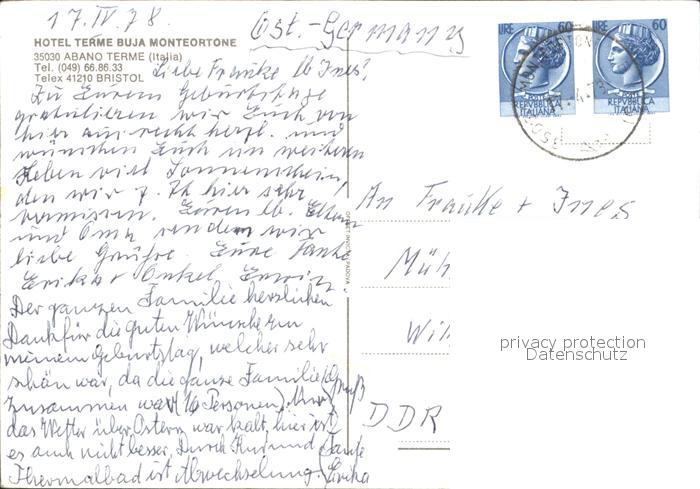 17.IV.78.
Ost.-Germany
HOTEL TERME BUJA MONTEORTONE
35030 ABANO TERME (Italia)
Tel. (049) 66.86.33
Telex 41210 BRISTOL
Liebe Frauke lb Ines!
Zu Eurem Geburtstage
gratulieren wir Euch von
hier aus recht herzl. und
wünschen Euch im weiteren
Leben viel Sonnenschein,
den wir z. Zt hier sehr
vermissen. Euren lb. Eltern
und Oma senden wir
liebe Grüße. Eure Tante
Erika Onkel Erwin
Der ganzen Familie herzlichen
Dank für die guten Wünsche zu
meinem Geburtstag, welcher sehr
schön war, da die ganze Familie
zusammen war (16 Personen). Nur
das Wetter über Ostern war kalt, hier ist
es auch nicht besser. Durch Kur und
Thermalbad ist Abwechselung.
Gruß
Tante
Erika
An Frauke + Ines
Müh
Wil
DDR
LIRE 60
POSTE
REPVBBLICA
ITALIANA
LIRE 60
POSTE
REPVBBLICA
ITALIANA
privacy protection
Datenschutz